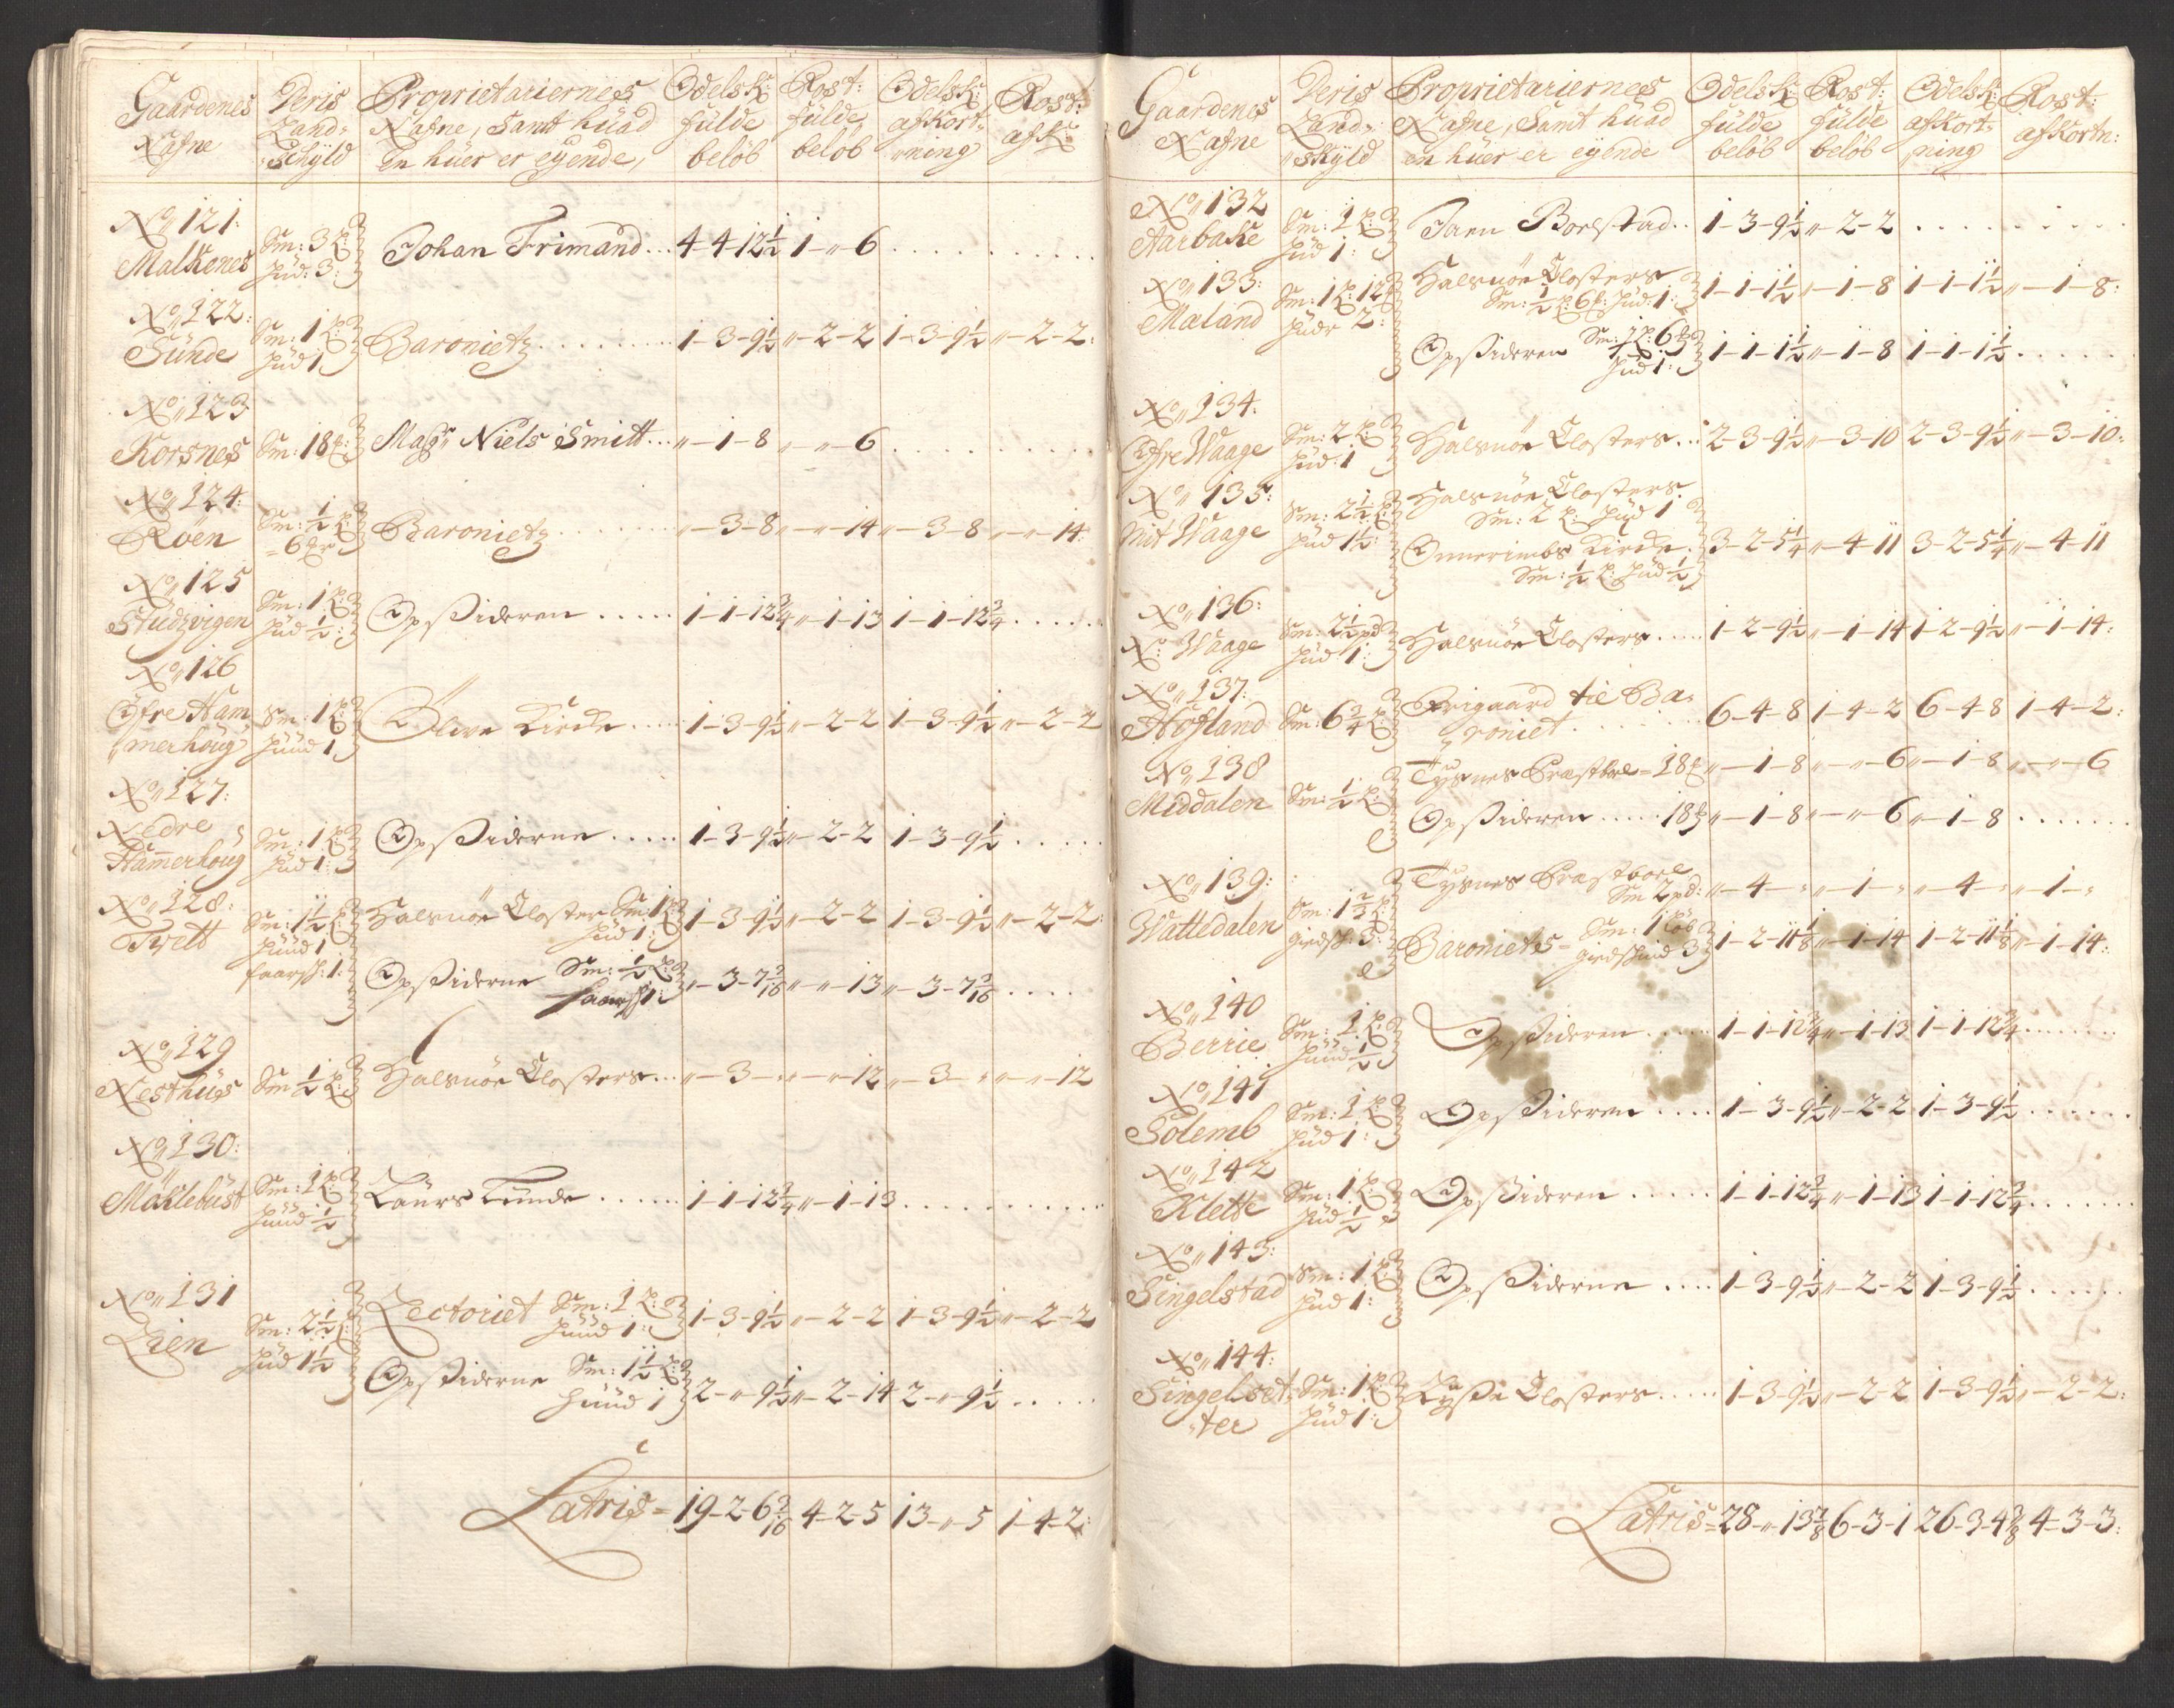 Gaardenes Nafne | Deris Land-Schyld | Proprietariernes Nafne, Samt huad En huer er eyende, | Odelsk: fulde beløb | Rost: fulde beløb | Odelsk: afkort-ning | Rost: afk:
No 121: Malkenes | Sm: 3 L: hud: 3: | Johan Frimand... | 4-4-12½ | 1-"-6 | ....
No 122: Sunde | Sm: 1 L: hud 1 | Baroniet | 1-3-9½ | "-2-2 | 1-3-9½ | "-2-2:
No 123 Korsnes | Sm: 18 | Magr Niels Smitt... | "-1-8 | "-"-6 | ....
No 124: Röen | Sm: ½ L: 6 | Baroniet | "-3-8 | "-"-14 | "-3-8 | "-"-14
No 125 Studzvigen | Sm: 1 L: hud ½: | Opsideren ..... | 1-1-12¾ | "-1-13 | 1-1-12¾ | ....
No 126 Øfre Ham merhoug | Sm: 1 L: huud 1 | Ölwe Kirche .... | 1-3-9½ | "-2-2 | 1-3-9½ | "-2-2
No 127: Nedre Hamerhoug | Sm: 1 L: hud 1: | Opsiderne ..... | 1-3-9½ | "-2-2 | 1-3-9½ | ....
No 128: Tvett | Sm: 1½ L: huud 1 faarsk: 1: | Halsnöe Closter Sm: 1 L hud 1: | 1-3-9½ | "-2-2 | 1-3-9½ | "-2-2:
Opsiderne Sm: ½ L: faarsk 1: | "-3-7 3/16 | "-"-13 | "-3-7 3/16 | ....
No 129 Nesthus | Sm ½ L: | Halsnöe Closters... | "-3-" | "-"-12 | "-3-" | "-"-12
No 130: Maklebust | Sm: 1 L: huud ½ | Laurs Kunde ...... | 1-1-12¾ | "-1-13 | ....
No 131 Lien | Sm: 2½ L: hud 1½ | Lectoriet Sm: 1 L: huud 1: | 1-3-9½ | "-2-2 | 1-3-9½ | "-2-2
Opsiderne Sm: 1½ L: huud 1 | 2-"-9½ | "-2-14 | 2-"-9½ | ....
Latris= | 19-2-6 3/16 | 4-2-5 | 13-"-5 | 1-4-2:
Gaardenes Nafne | Deris Land-Skyld | Proprietariernes Nafne, Samt huad en huer er eyende | Odelsk: fulde beløb | Rost: fulde beløb | Odelsk: afkort-ning | Rost: afkortn:
No 132 Aarbake | Sm: 1 L: hud 1: | Jaen Boelstad.. | 1-3-9½ | "-2-2 | ....
No 133: Maland | Sm: 1 L: 12 huder 2: | Halsnöe Closters Sm: ½ L: 6 hud: 1: | 1-1-1½ | "-1-8 | 1-1-1½ | "-1-8:
Opsideren Sm: ½ L: 6 hud 1: | 1-1-1½ | "-1-8 | 1-1-1½ | ....
No 134: Øfre Waage | Sm: 2 L: hud: 1 | Halsnöe Closters... | 2-3-9½ | "-3-10 | 2-3-9½ | "-3-10:
No 135: Mit Waage | Sm: 2½ L: hud 1½: | Halsnöe Closters Sm: 2 L: hud 1
Onnerimbs Kirche. Sm: ½ L: hud ½ | 3-2-5¼ | "-4-11 | 3-2-5¼ | "-4-11
No 136: N: Waage | Sm: 2½ pd hud 1: | Halsnöe Closters .... | 1-2-9½ | "-1-14 | 1-2-9½ | "-1-14:
No 137: Hofland | Sm: 6¾ L: | Frigaard til Ba-roniet | 6-4-8 | 1-4-2 | 6-4-8 | 1-4-2:
No 138 Middalen | Sm: ½ L: | Tysnes Præstboel = 18 | "-1-8 | "-"-6 | "-1-8 | "-"-6
Opsideren ..... 18 | "-1-8 | "-"-6 | "-1-8 | ....
No 139: Wattedalen | Sm: 1⅔ L: giedsk: 3: | Tysnes Præstboel Sm 2 pd: | "-4-" | "-1-" | "-4-" | "-1-"
Baroniets= Sm: 1 Löb giedskind 3 | 1-2-11⅛ | "-1-14 | 1-2-11⅛ | "-1-14:
No 140 Berrie | Sm: 1 L: huud ½ | Opsideren ..... | 1-1-12¾ | "-1-13 | 1-1-12¾ | ....
No 141 Solemb | Sm: 1 L: hud 1: | Opsideren .... | 1-3-9½ | "-2-2 | 1-3-9½ | ....
No 142 Klette | Sm: 1 L: hud ½ | Opsideren ..... | 1-1-12¾ | "-1-13 | 1-1-12¾ | ....
No 143: Singelstad | Sm: 1 L: hud 1: | Opsiderne .... | 1-3-9½ | "-2-2 | 1-3-9½ | ....
No 144: Singelset-ter | Sm: 1 L: hud 1: | Lyse Closters .... | 1-3-9½ | "-2-2 | 1-3-9½ | "-2-2:
Latris= | 28-"-13⅞ | 6-3-1 | 26-3-4⅜ | 4-3-3: